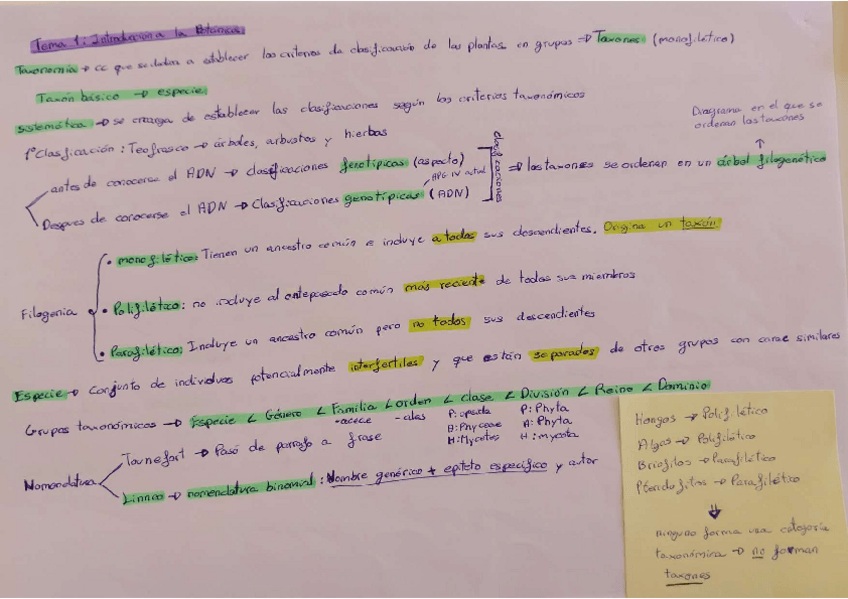 Tema 1: Introducción a la Botánica
Taxonomía → cc que se dedica a establecer los criterios de clasificación de las plantas en grupos ⇒ Taxones (monofilético)
Taxón básico → especie
Sistemática → se encarga de establecer las clasificaciones según los criterios taxonómicos
Diagrama en el que se
ordenan los taxones
↑
1ª Clasificación: Teofrasco → árboles, arbustos y hierbas
antes de conocerse el ADN → clasificaciones fenotípicas (aspecto)
APG IV actual
Despues de conocerse el ADN → Clasificaciones genotípicas (ADN)
clasificaciones
⇒ los taxones se ordenan en un árbol filogenético
Filogenia
• monofilético: Tienen un ancestro común e incluye a todos sus descendientes. Origina un taxón
• Polifilético: no incluye al antepasado común más reciente de todos sus miembros
• Parafilético: Incluye un ancestro común pero no todos sus descendientes
Especie → Conjunto de individuos potencialmente interfertiles y que están separados de otros grupos con similares
Grupos taxonómicos → Especie < Género < Familia < orden < clase < División < Reino < Dominio
-aceae -ales P: opsida P: Phyta
A: Phyceae A: Phyta
H: Mycetes H: mycota
Nomenclatura
Tournefort → Pasó de parrafo a frase
Linneo → nomenclatura binomial: Nombre genérico + epíteto específico y autor
Hongos → Polifilético
Algas → Polifilético
Briofitos → Parafilético
Pteridofitos → Parafilético
⇓
ninguno forma una categoría
taxonómina → no forman
taxones